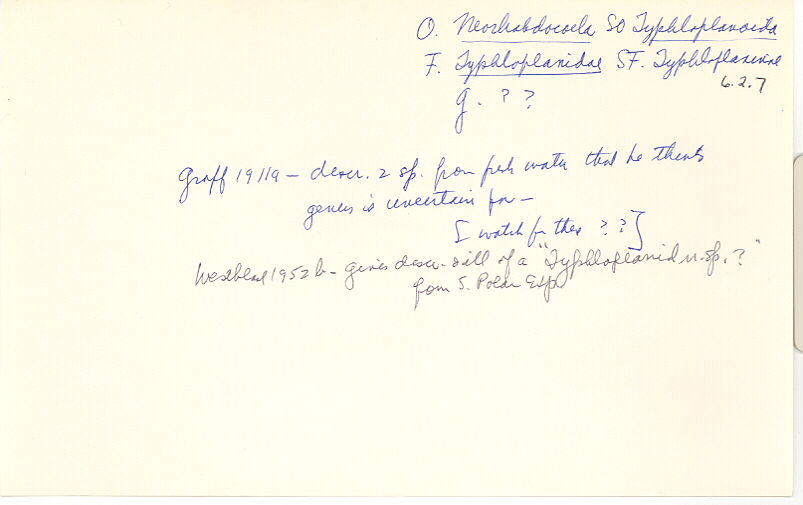 O. Neorhabdocoela SO Typhloplanoida
F. Typhloplanidae SF. Typhloplaninae
6.2.7
g. ? ?
Graff 1911a – descr. 2 sp. from fresh water that he thinks
genus is uncertain for –
[ watch for these ? ? ]
Westblad 1952 b – gives descr. & ill of a "Typhloplanid n. sp. ?"
from S. Polar Exp